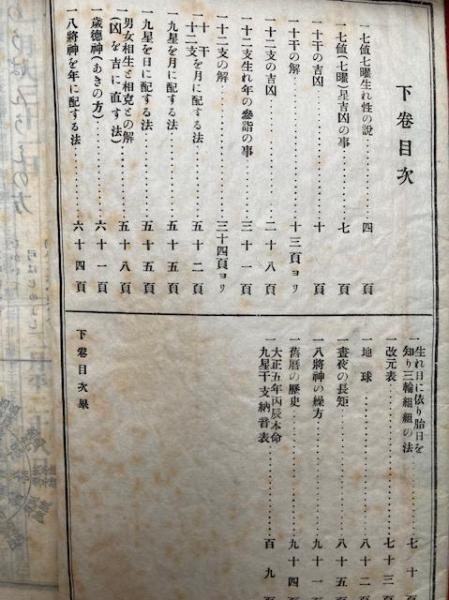 下卷目次
一七値七曜生れ性の說……四頁
一七値(七曜)星吉凶の事……七頁
一十干の吉凶……十頁
一十干の解……十三頁ヨリ
一十二支の吉凶……二十八頁
一十二支生れ年の參詣の事……三十一頁
一十二支の解……三十四頁ヨリ
一十干十二支を月に配する法……五十二頁
一九星を月に配する法……五十五頁
一九星を日に配する法……五十五頁
一男女相生と相克との解(凶を吉に直す法)……五十八頁
一歲德神(あきの方)……六十一頁
一八將神を年に配する法……六十四頁
一生れ日に依り胎日を知り三輪組組の法……七十頁
一改元表……七十三頁
一地球……八十二頁
一晝夜の長短……八十五頁
一八將神の繰方……九十一頁
一舊曆の歷史……九十四頁
一大正五年丙辰本命九星干支納音表……百九頁
下卷目次泉